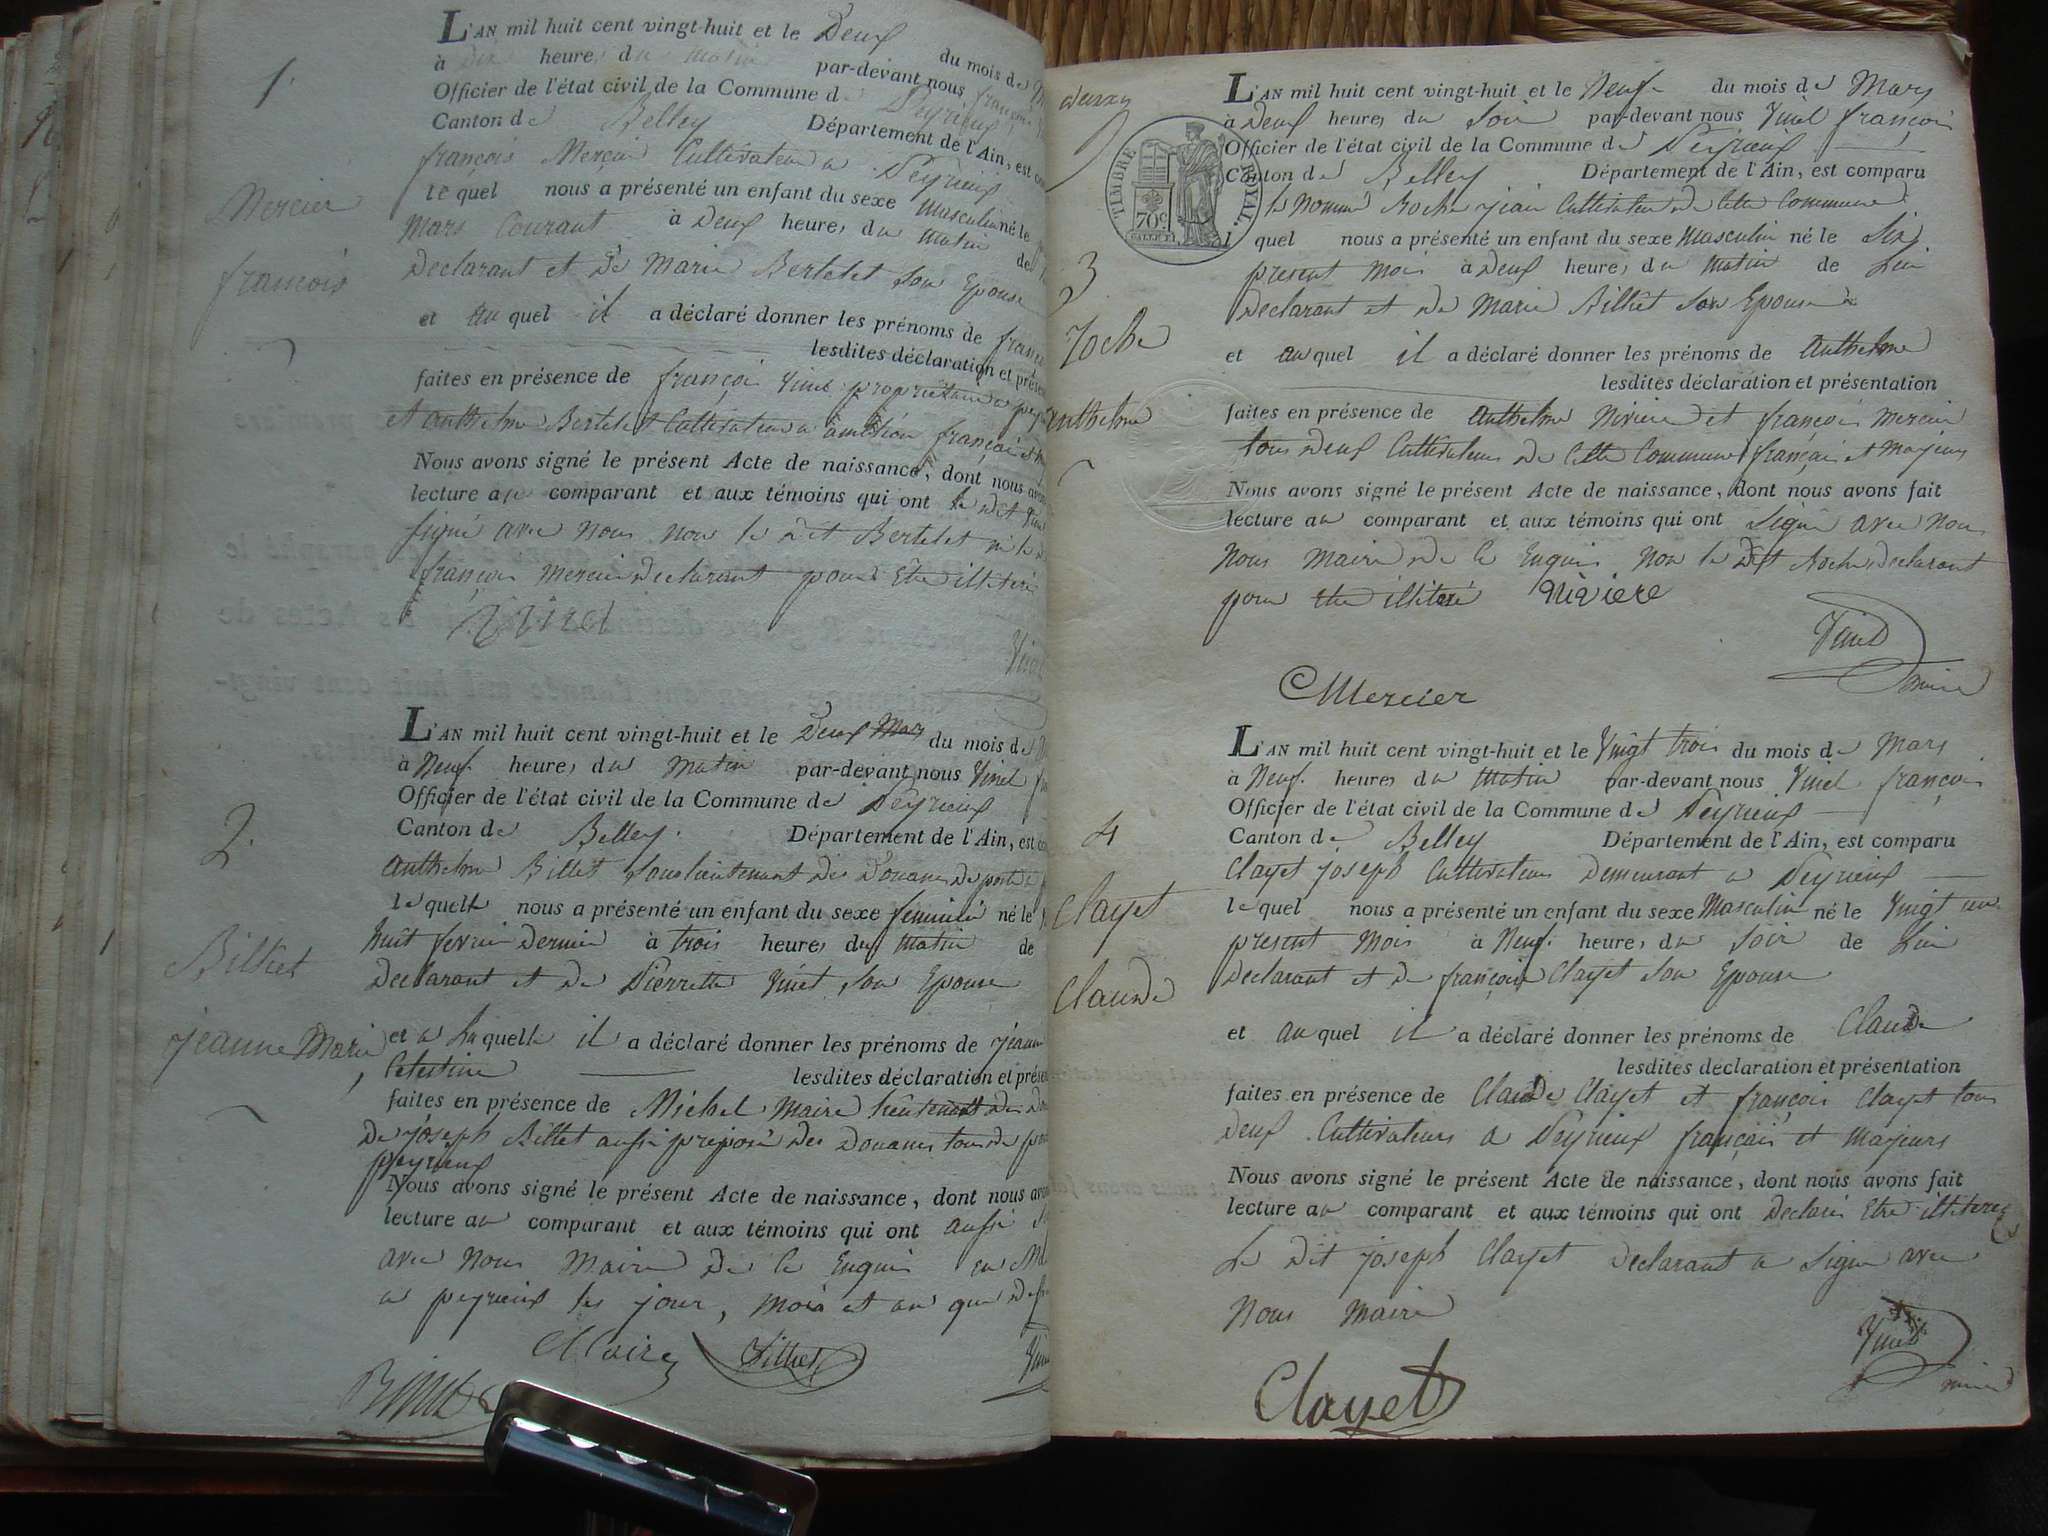 1.
Mercier
françois
L'AN mil huit cent vingt-huit et le Deux du mois de
à dix heures du matin par-devant nous françois
Officier de l'état civil de la Commune de Peyrieux
Canton de Belley Département de l'Ain, est
françois Mercier Cultivateur a Peyrieux
lequel nous a présenté un enfant du sexe masculin né le
Mars Courant à Deux heures du matin de
Declarant et De Marie Bertelet son Epouse
et auquel il a déclaré donner les prénoms de
lesdites déclaration et
faites en présence de françois Vinet propriétaire a
et anthelme Bertelet Cultivateur a françois et
Nous avons signé le présent Acte de naissance, dont nous
lecture au comparant et aux témoins qui ont le dit
signé avec nous non le dit Bertelet ni le
françois Mercier Declarant pour Etre illiteré
2.
Billiet
jeanne Marie
L'AN mil huit cent vingt-huit et le Deux Mars du mois de
à Neuf heures du matin par-devant nous Vinet
Officier de l'état civil de la Commune de Peyrieux
Canton de Belley. Département de l'Ain, est
Anthelme Billet Souslieutenant Des Douanes De
lequell nous a présenté un enfant du sexe feminin né le
huit fevrier Dernier à trois heures du matin de
Declarant et De Pierrette Vinet son Epouse
et a laquell il a déclaré donner les prénoms de
Celestine lesdites déclaration et
faites en présence de Michel Maire lieutenant Des
De joseph Billet aussi preposé Des Douanes tous De
peyrieux
Nous avons signé le présent Acte de naissance, dont nous
lecture au comparant et aux témoins qui ont aussi
avec Nous Maire De ce Enquis
a peyrieux les jour, mois et an que
Maire Billiet
L'AN mil huit cent vingt-huit et le Neuf du mois de Mars
à Deux heures du Soir par-devant nous Vinet françois
Officier de l'état civil de la Commune de Peyrieux
Canton de Belley Département de l'Ain, est comparu
TIMBRE ROYAL.
70c
le Nommé Roche jean Cultivateur De Cette Commune
lequel nous a présenté un enfant du sexe Masculin né le Six
present mois à Deux heures du matin de Lui
Declarant et De Marie Billiet son Epouse
3
Roche
anthelme
et auquel il a déclaré donner les prénoms de Anthelme
lesdites déclaration et présentation
faites en présence de Anthelme Riviere et françois mercier
tous Deux Cultivateurs De Cette Commune français et Majeurs
Nous avons signé le présent Acte de naissance, dont nous avons fait
lecture au comparant et aux témoins qui ont signé avec Nous
Nous Maire De ce Enquis Non le Dit Roche Declarant
pour etre illiteré Riviere
Vinet
maire
Mercier
L'AN mil huit cent vingt-huit et le Vingt trois du mois de Mars
à Neuf heures du Matin par-devant nous Vinet françois
Officier de l'état civil de la Commune de Peyrieux
Canton de Belley Département de l'Ain, est comparu
4
Clayet
Claude
Clayet joseph Cultivateur Demeurant a Peyrieux
lequel nous a présenté un enfant du sexe Masculin né le Vingt un
present Mois à Neuf heures du Soir de Lui
Declarant et de françoise Clayet son Epouse
et auquel il a déclaré donner les prénoms de Claude
lesdites déclaration et présentation
faites en présence de Claude Clayet et françois Clayet tous
Deux Cultivateurs a Peyrieux français et Majeurs
Nous avons signé le présent Acte de naissance, dont nous avons fait
lecture au comparant et aux témoins qui ont Declaré Etre illiteré
Le Dit joseph Clayet Declarant a Signé avec
Nous Maire
Vinet
maire
Clayet